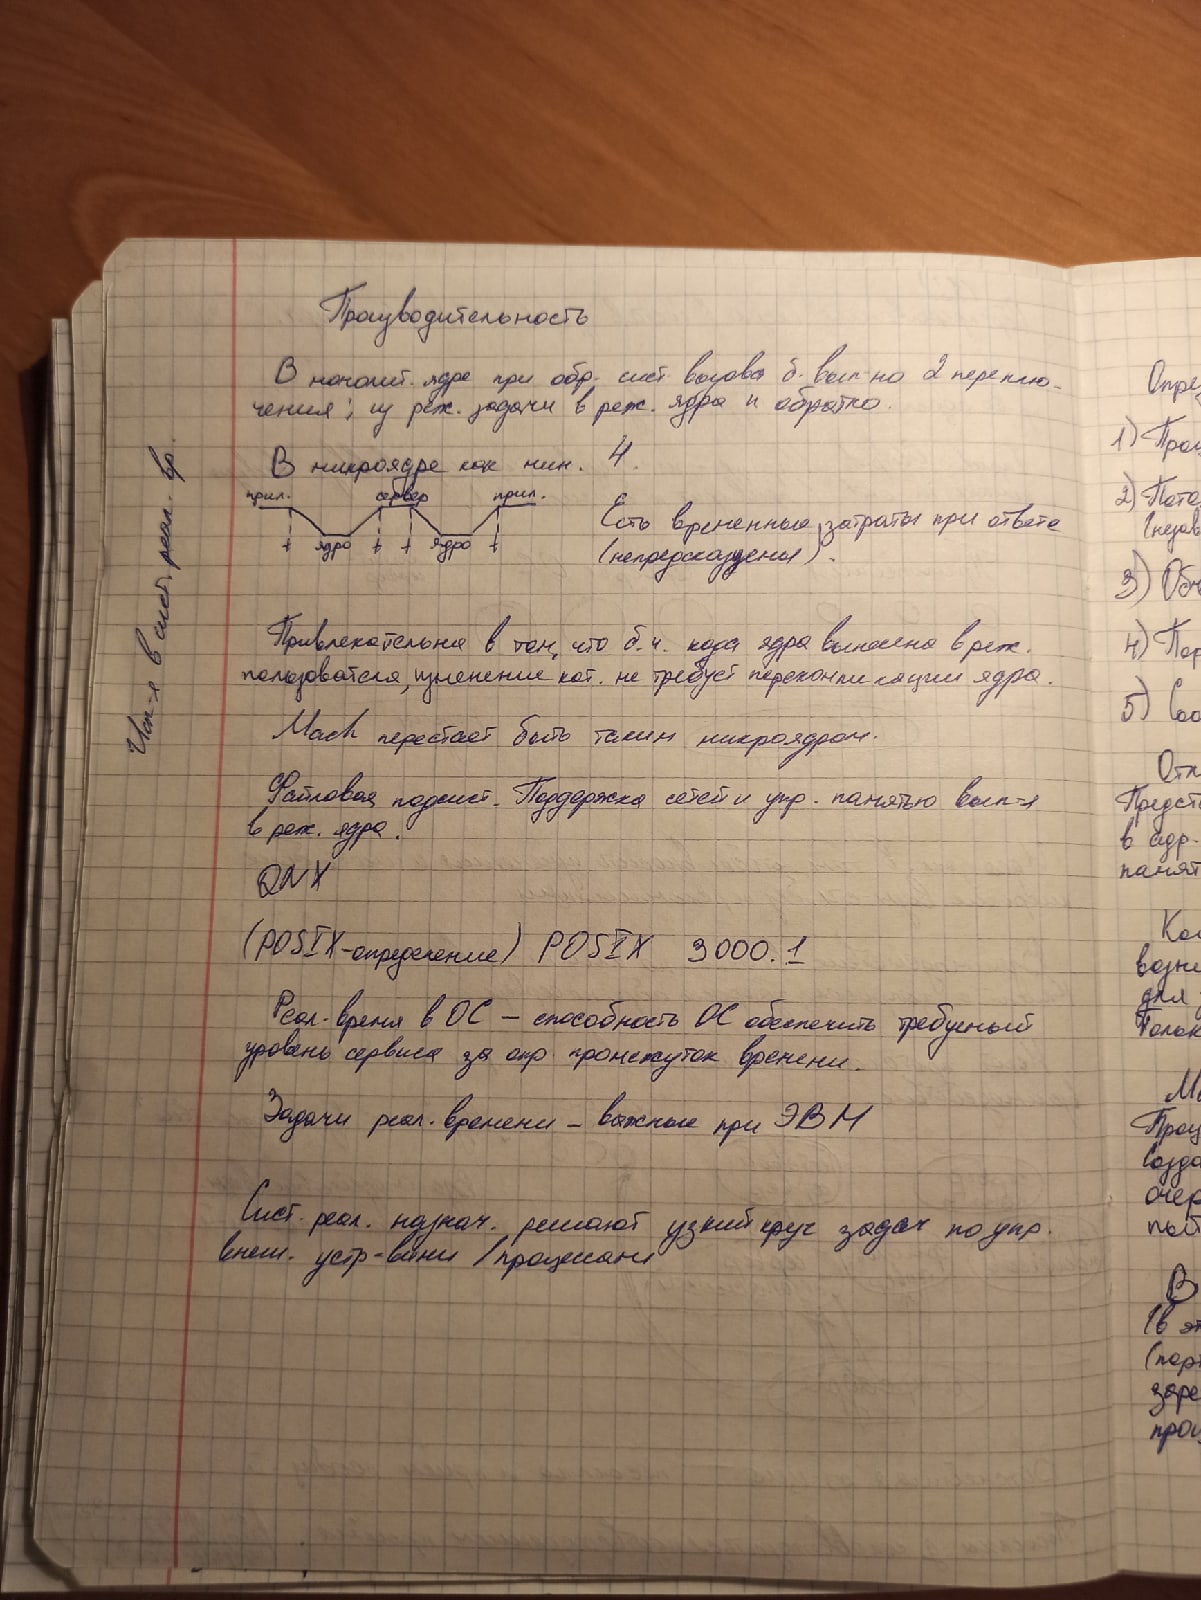 Производительность
В монолит. ядре при обр. сист. вызова б. вып-но 2 переклю-
чения: из реж. задачи в реж. ядра и обратно.
В микроядре как мин. 4.
прил. сервер прил.
ядро ядро
Есть временные затраты при ответе
(непредсказуемы).
Исп-я в сист. реал. вр.
Привлекательна в том, что б.ч. кода ядра вынесена в реж.
пользователя, изменение кот. не требует перекомпиляции ядра.
Mach перестает быть таким микроядром.
Файловая подсист. Поддержка сетей и упр. памятью вып-я
в реж. ядра.
QNX
(POSIX-определение) POSIX 3000.1
Реал. время в ОС – способность ОС обеспечить требуемый
уровень сервиса за опр. промежуток времени.
Задачи реал. времени – важные при ЭВМ
Сист. реал. назнач. решают узкий круг задач по упр.
внеш. устр-вами / процессами
Опре
1) Проц
2) Пото
(незав
3) Объ
4) Пор
5) Соо
Отл
Предст
в адр.
памят
Ком
возни
для
только
Проц
Созда
очер
пост
В
(в эт
(пор
заре
проц